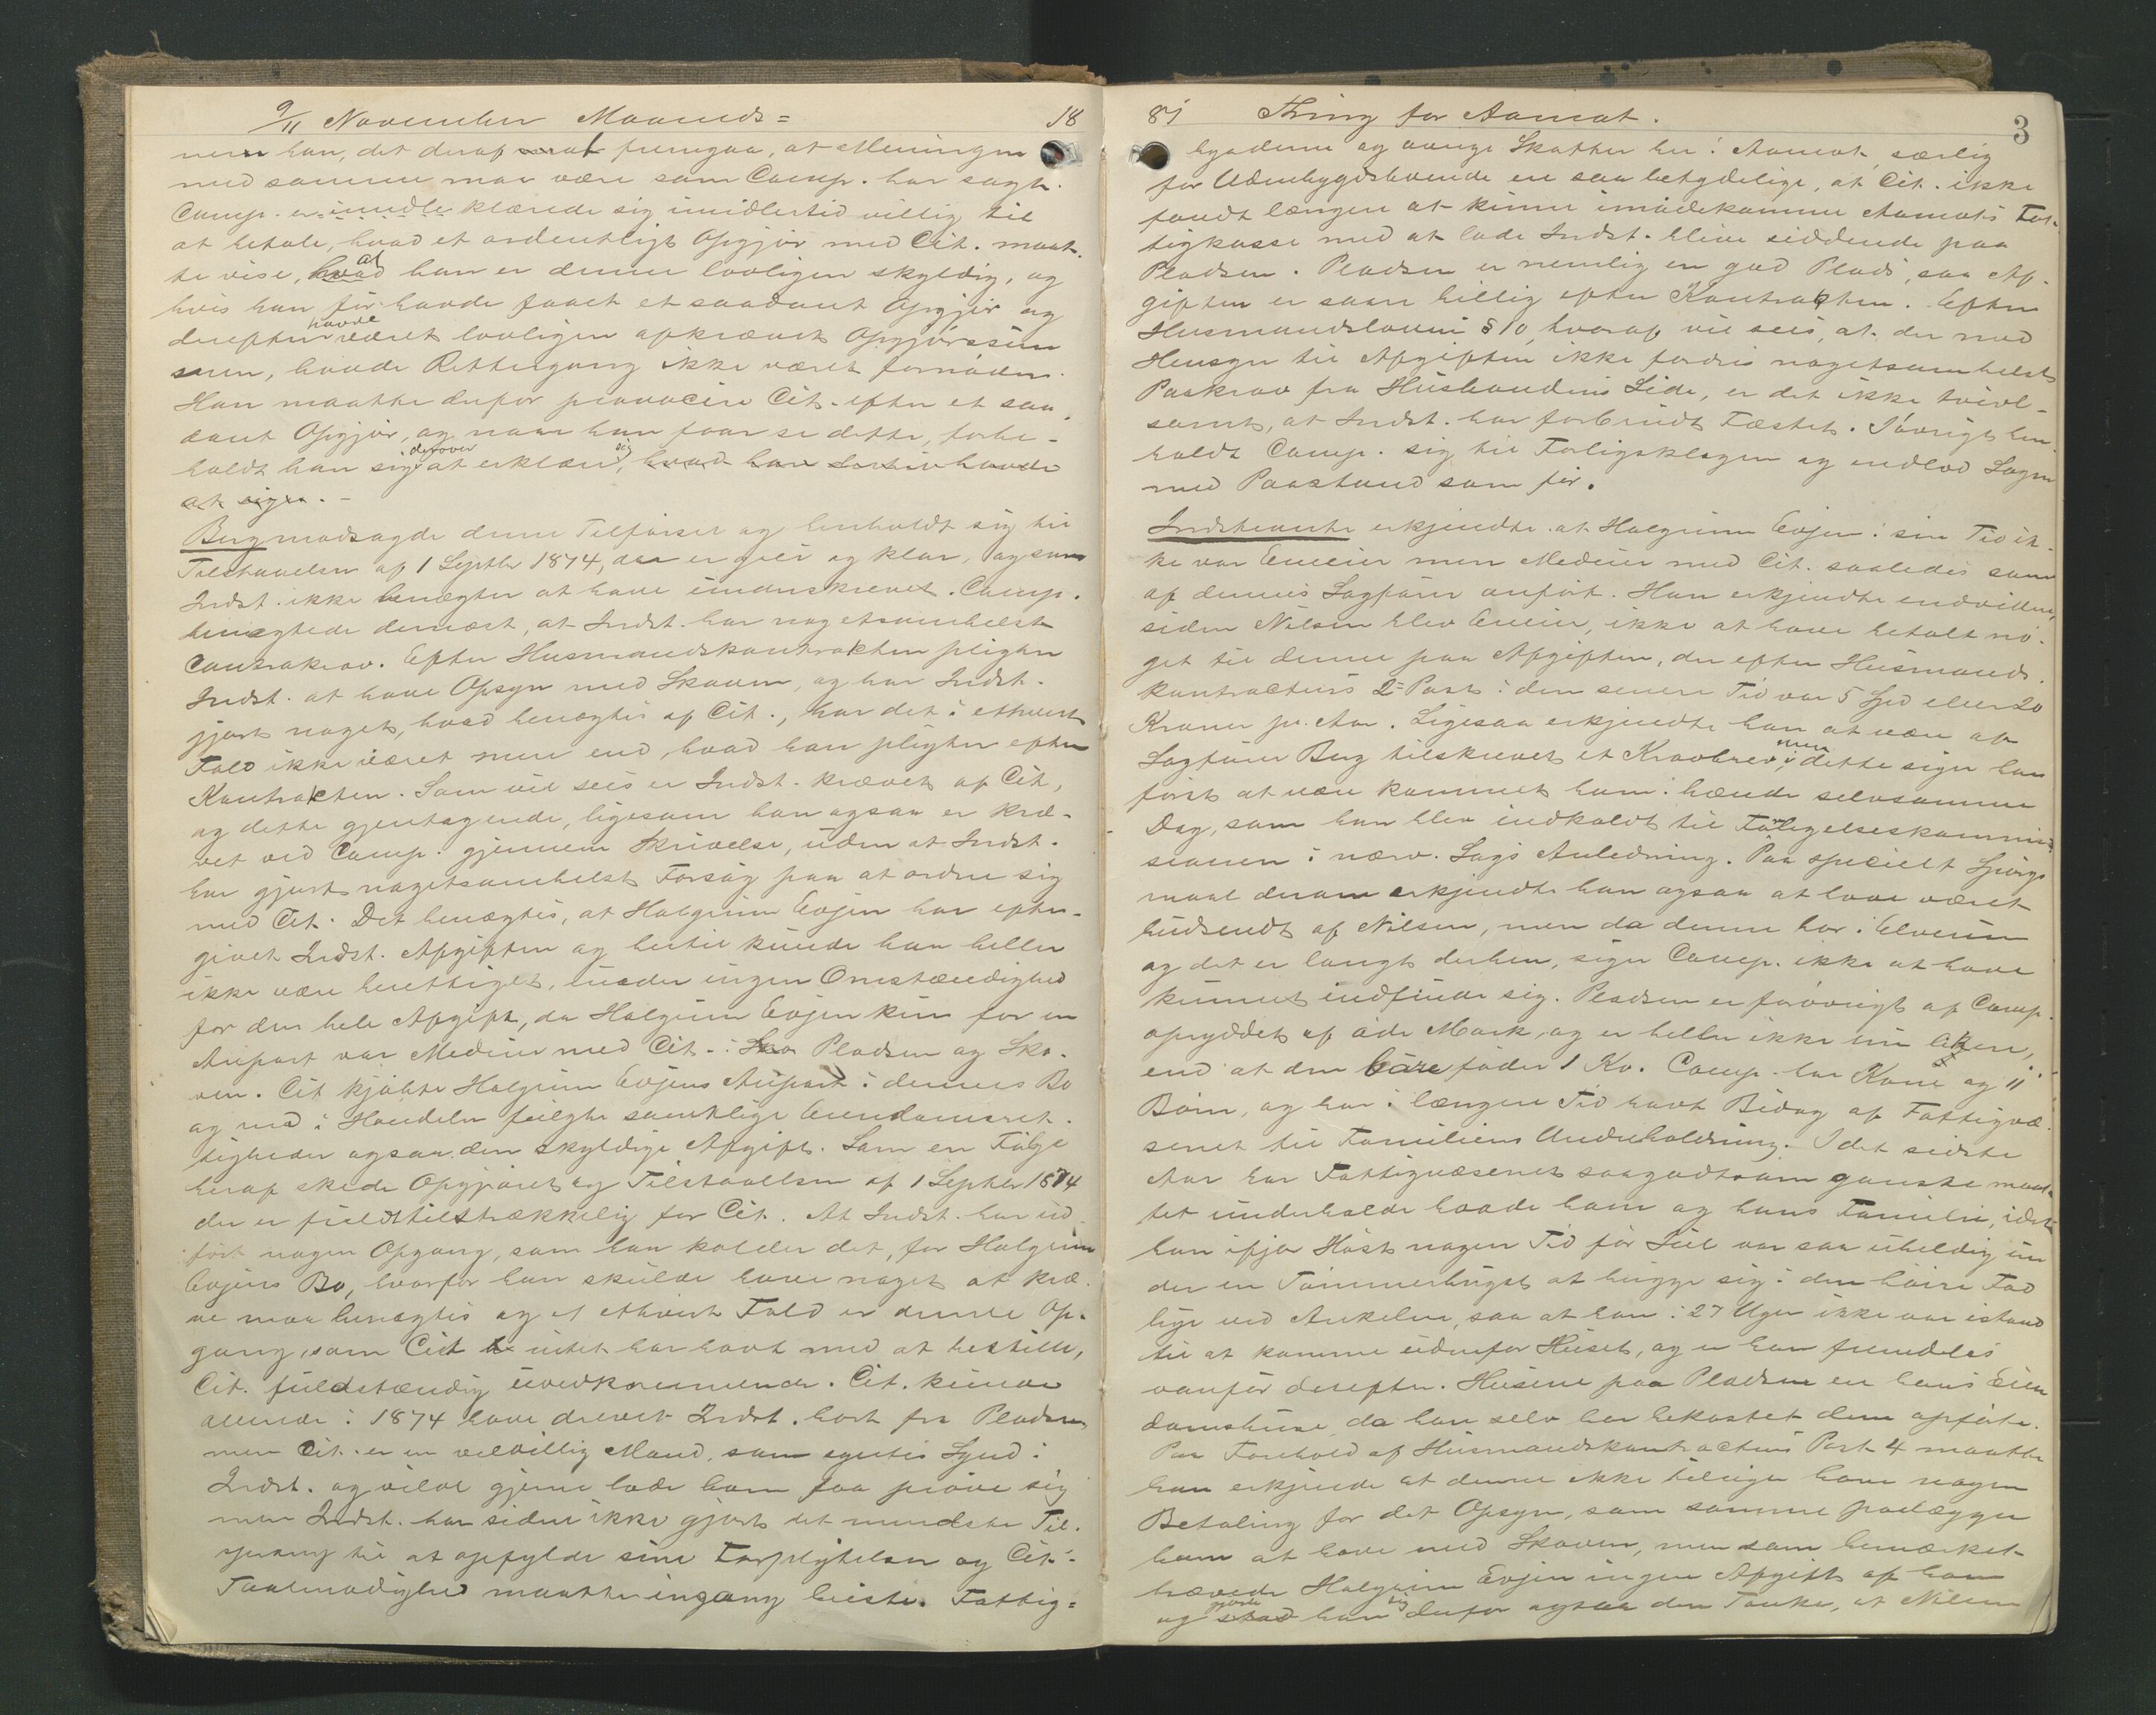 9/11 November Maaneds=
18
nem han, det deraf fremgaa, at Meningen
med samme maa være som Comp. har sagt.
Comp. er imidler klærede sig imidlertid villig til
at betale, hvad et ordentligt Opgjør med Cit. maat-
te vise, hvad at han er denne lovligen skyldig, og
hvis han før havde faaet et saadant Opgjør og
derefter havde været lovligen afkrævet Opgjørssum
men, havde Rettergang ikke været fornøden.
Han maatte derfor provocere Cit. efter et saa
dant Opgjør, og naar han faar se dette, forbe-
holdt han sig derover at erklære sig, hvad han havde
at sige. -
Berg modsagde denne Tilførsel og henholdt sig til
Tilstaaelsen af 1 Septbr 1874, der er grei og klar, og som
Indst. ikke benægter at have underskrevet. Comp.
benægtede dernæst, at Indst. har nogetsomhelst
Contrakrav. Efter Husmandskontrakten pligter
Indst. at have Opsyn med Skoven, og har Indst.
gjort noget, hvad benægtes af Cit., har det i ethvert
Fald ikke været mere end, hvad han pligter efter
Kontrakten. Som vil sees er Indst. krævet af Cit,
og dette gjentagende, ligesom han ogsaa er kræ-
vet ved Comp. gjennem Skrivelse, uden at Indst.
har gjort nogetsomhelst Forsøg paa at ordne sig
med Cit. Det benægtes, at Halgrim Evjen har efter-
givet Indst. Afgiften og hertil kunde han heller
ikke være berettiget, under ingen Omstændighed
for den hele Afgift, da Halgrim Evjen kun for en
Anpart var Medeier med Cit. i Sko Pladsen og Sko-
ven. Cit kjøbte Halgrim Evjens Anpart i dennes Bo
og med i Handelen fulgte samtlige Eiendomsret-
tigheder ogsaa den skyldige Afgift. Som en Følge
heraf skede Opgjøret og Tilstaaelsen af 1 Septbr 1874
der er fuldt tilstrækkelig for Cit. At Indst. har ud
ført nogen Opgang, som han kalder det, for Halgrim
Evjens Bo, hvorfor han skulde have noget at kræ-
ve maa benægtes og i ethvert Fald er denne Op-
gang, som Cit intet har havt med at bestille,
Cit. fuldstændig uvedkommende. Cit. kunde
allerede i 1874 have drevet Indst. bort fra Pladsen
men Cit. er en velvillig Mand, som syntes Synd i
Indst. og vilde gjerne lade ham faa prøve sig
men Indst. har siden ikke gjort det mindste Til-
sprang til at opfylde sine Forpligtelser og Cit.'s
Taalmodighed maatte engang briste. Fattig=
81
Thing for Aamot.
3
byrderne og øvrige Skatter her i Aamot særlig
for Udenbygdsboende ere saa betydelige, at Cit. ikke
fandt længere at kunne imødekomme Aamots Fat-
tigkasse med at lade Indst. blive siddende paa
Pladsen. Pladsen er nemlig en god Plads, saa Af-
giften er saare billig efter Kontrakten. Efter
Husmandsloven § 10, hvoraf vil sees, at der med
Hensyn til Afgiften ikke fordres nogetsomhelst
Paakrav fra Husbondens Side, er det ikke tvivl-
somt, at Indst. har forbrudt Fæstet. Iøvrigt hen
holdt Comp. sig til Forligsklagen og indlod Sagen
med Paastand som før.
Indstevnte erkjendte at Halgrim Evjen i sin Tid ik-
ke var Eneeier men Medeier med Cit. saaledes som
af dennes Sagfører anført. Han erkjendte endvidere,
siden Nilsen blev Eneeier, ikke at have betalt no-
get til denne paa Afgiften, der efter Husmands-
kontractens 2= Post i den senere Tid var 5 Spd eller 20
Kroner pr. Aar. Ligesaa erkjendte han at være af
Sagfører Berg tilskrevet et Kravbrev, men dette siger han
først at være kommet ham i hænde selvsamme
Dag, som han blev indkaldt til Forligelseskommis-
sionen i nærv. Sags Anledning. Paa specielt Spørgs
maal derom erkjendte han ogsaa at have været
budsendt af Nilsen, men da denne bor i Elverum
og det er langt derhen, siger Comp. ikke at have
kunnet indfinde sig. Pladsen er forøvrigt af Comp.
opryddet af øde Mark, og er heller ikke
end at den bare føder 1 Ko. Comp. har Kone og 11
Børn, og har i længere Tid havt Bidrag af Fattigvæ-
senet til Familiens Underholdning. I det sidste
Aar har Fattigvæsenet saagodtsom ganske maat-
tet underholde baade ham og hans Familie, idet
han ifjor Høst nogen Tid før Jul var saa uheldig un
der en Tømmerhugst at hugge sig i den høire Fod
lige ved Ankelen, saa at han i 27 Uger ikke var istand
til at komme udenfor Huset, og er han fremdeles
vanfør derefter. Husene paa Pladsen ere hans Eien
domshuse, da han selv har bekostet dem opførte.
Paa Forehold af Husmandskontractens Post 4 maatte
han erkjende at denne ikke tilsiger ham nogen
Betaling for det Opsyn, som samme paalægger
ham at have med Skoven, men som bemærket
krævede Halgrim Evjen ingen Afgift af ham
og gjorde han sig derfor ogsaa den Tanke, at Nilsen